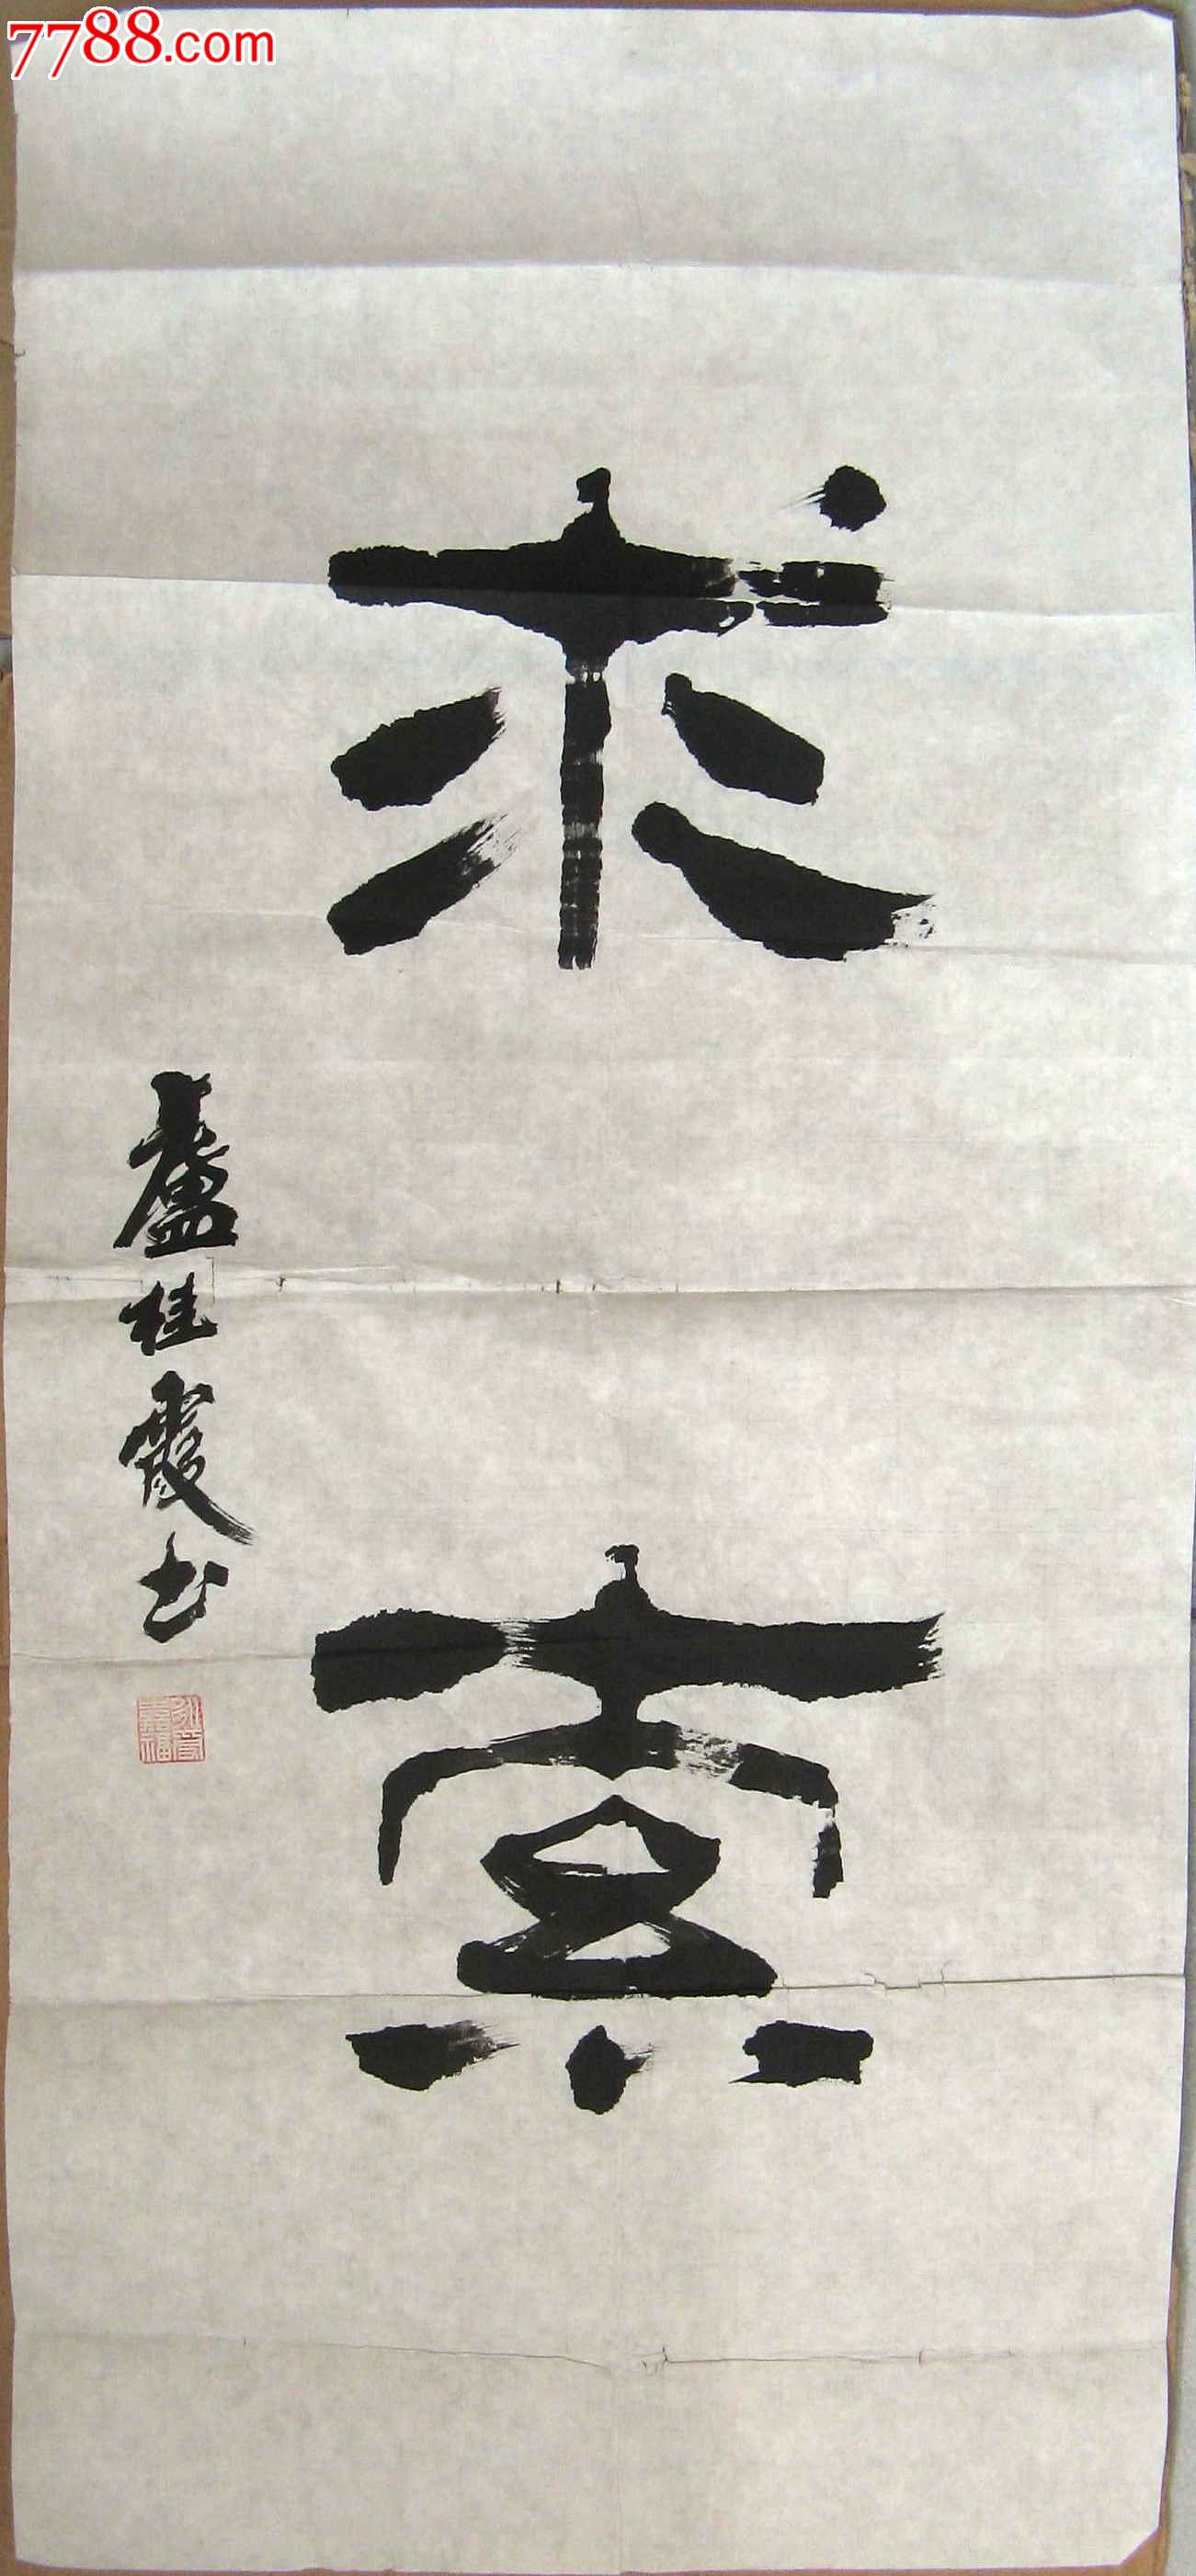 7788.com
求索
盧桂霞书